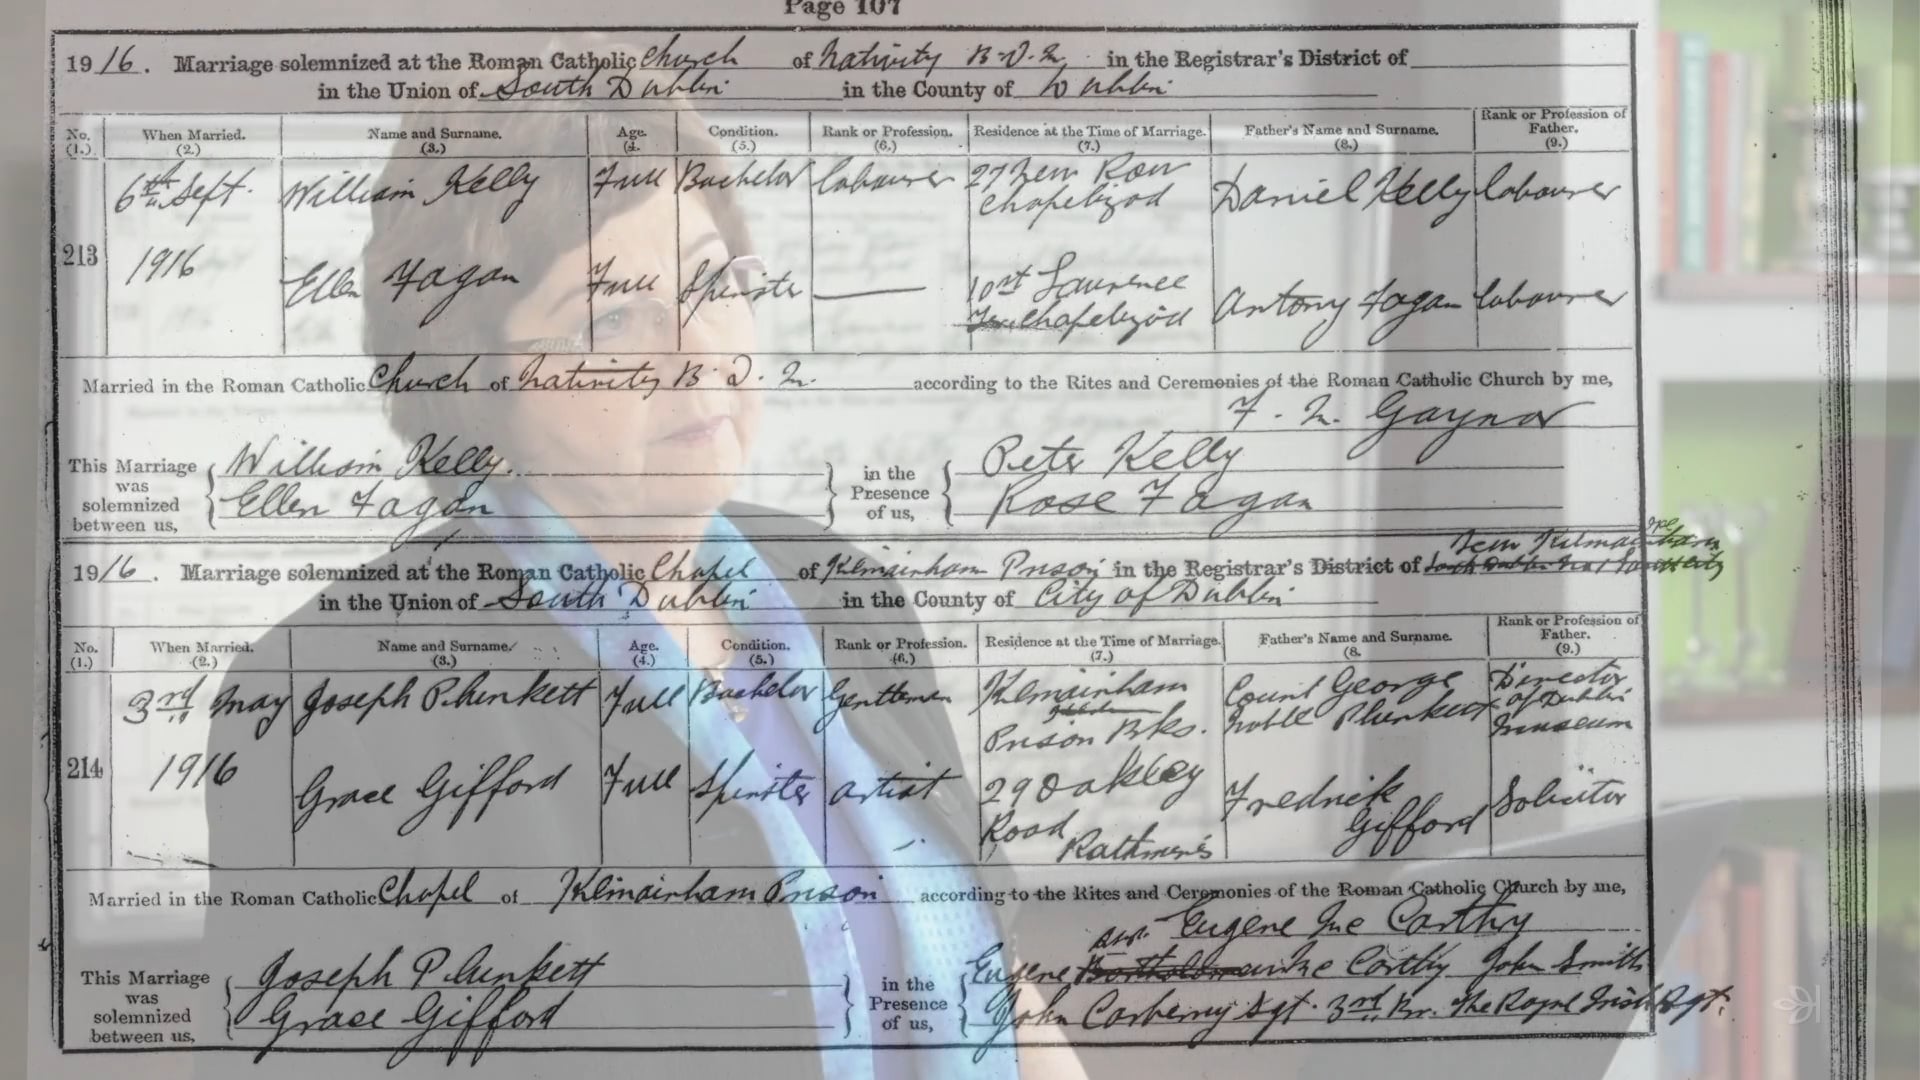 Page 107
1916. Marriage solemnized at the Roman Catholic Church of Nativity B.V.M. in the Registrar's District of
in the Union of South Dublin in the County of Dublin
No. When Married. Name and Surname. Age. Condition. Rank or Profession. Residence at the Time of Marriage. Father's Name and Surname. Rank or Profession of Father.
(1.) (2.) (3.) (4. (5.) (6.) (7.) (8.) (9.)
213 6th Sept. 1916 William Kelly Full Bachelor labourer 27 New Row Chapelizod Daniel Kelly labourer
Ellen Fagan Full Spinster 10 St Laurence Chapelizod Antony Fagan labourer
Married in the Roman Catholic Church of Nativity B.V.M. according to the Rites and Ceremonies of the Roman Catholic Church by me,
F. M. Gaynor
This Marriage was solemnized between us, William Kelly. Ellen Fagan in the Presence of us, Peter Kelly Rose Fagan
New Kilmainham
1916. Marriage solemnized at the Roman Catholic Chapel of Kilmainham Prison in the Registrar's District of
in the Union of South Dublin in the County of City of Dublin
No. When Married. Name and Surname. Age. Condition. Rank or Profession. Residence at the Time of Marriage. Father's Name and Surname. Rank or Profession of Father.
(1.) (2.) (3.) (4.) (5.) (6.) (7.) (8. (9.)
214 3rd May 1916 Joseph Plunkett Full Bachelor Gentleman Kilmainham Prison Bks. Count George Noble Plunkett Director of Dublin Museum
Grace Gifford Full Spinster artist 29 Oakley Road Rathmines Fredrick Gifford Solicitor
Married in the Roman Catholic Chapel of Kilmainham Prison according to the Rites and Ceremonies of the Roman Catholic Church by me,
Eugene Mc Carthy
This Marriage was solemnized between us, Joseph Plunkett Grace Gifford in the Presence of us, Eugene Mc Carthy John Smith
John Carberry Sgt. 3rd Bn. The Royal Irish Rgt.